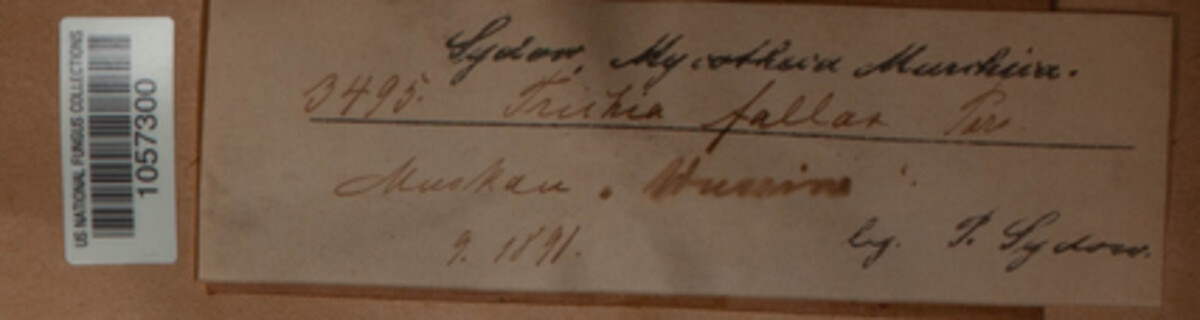 US NATIONAL FUNGUS COLLECTIONS
1057300
Sydow, Mycotheca Marchica.
3495. Trichia fallax Pers.
Muskau.
9. 1891.
leg. P. Sydow.